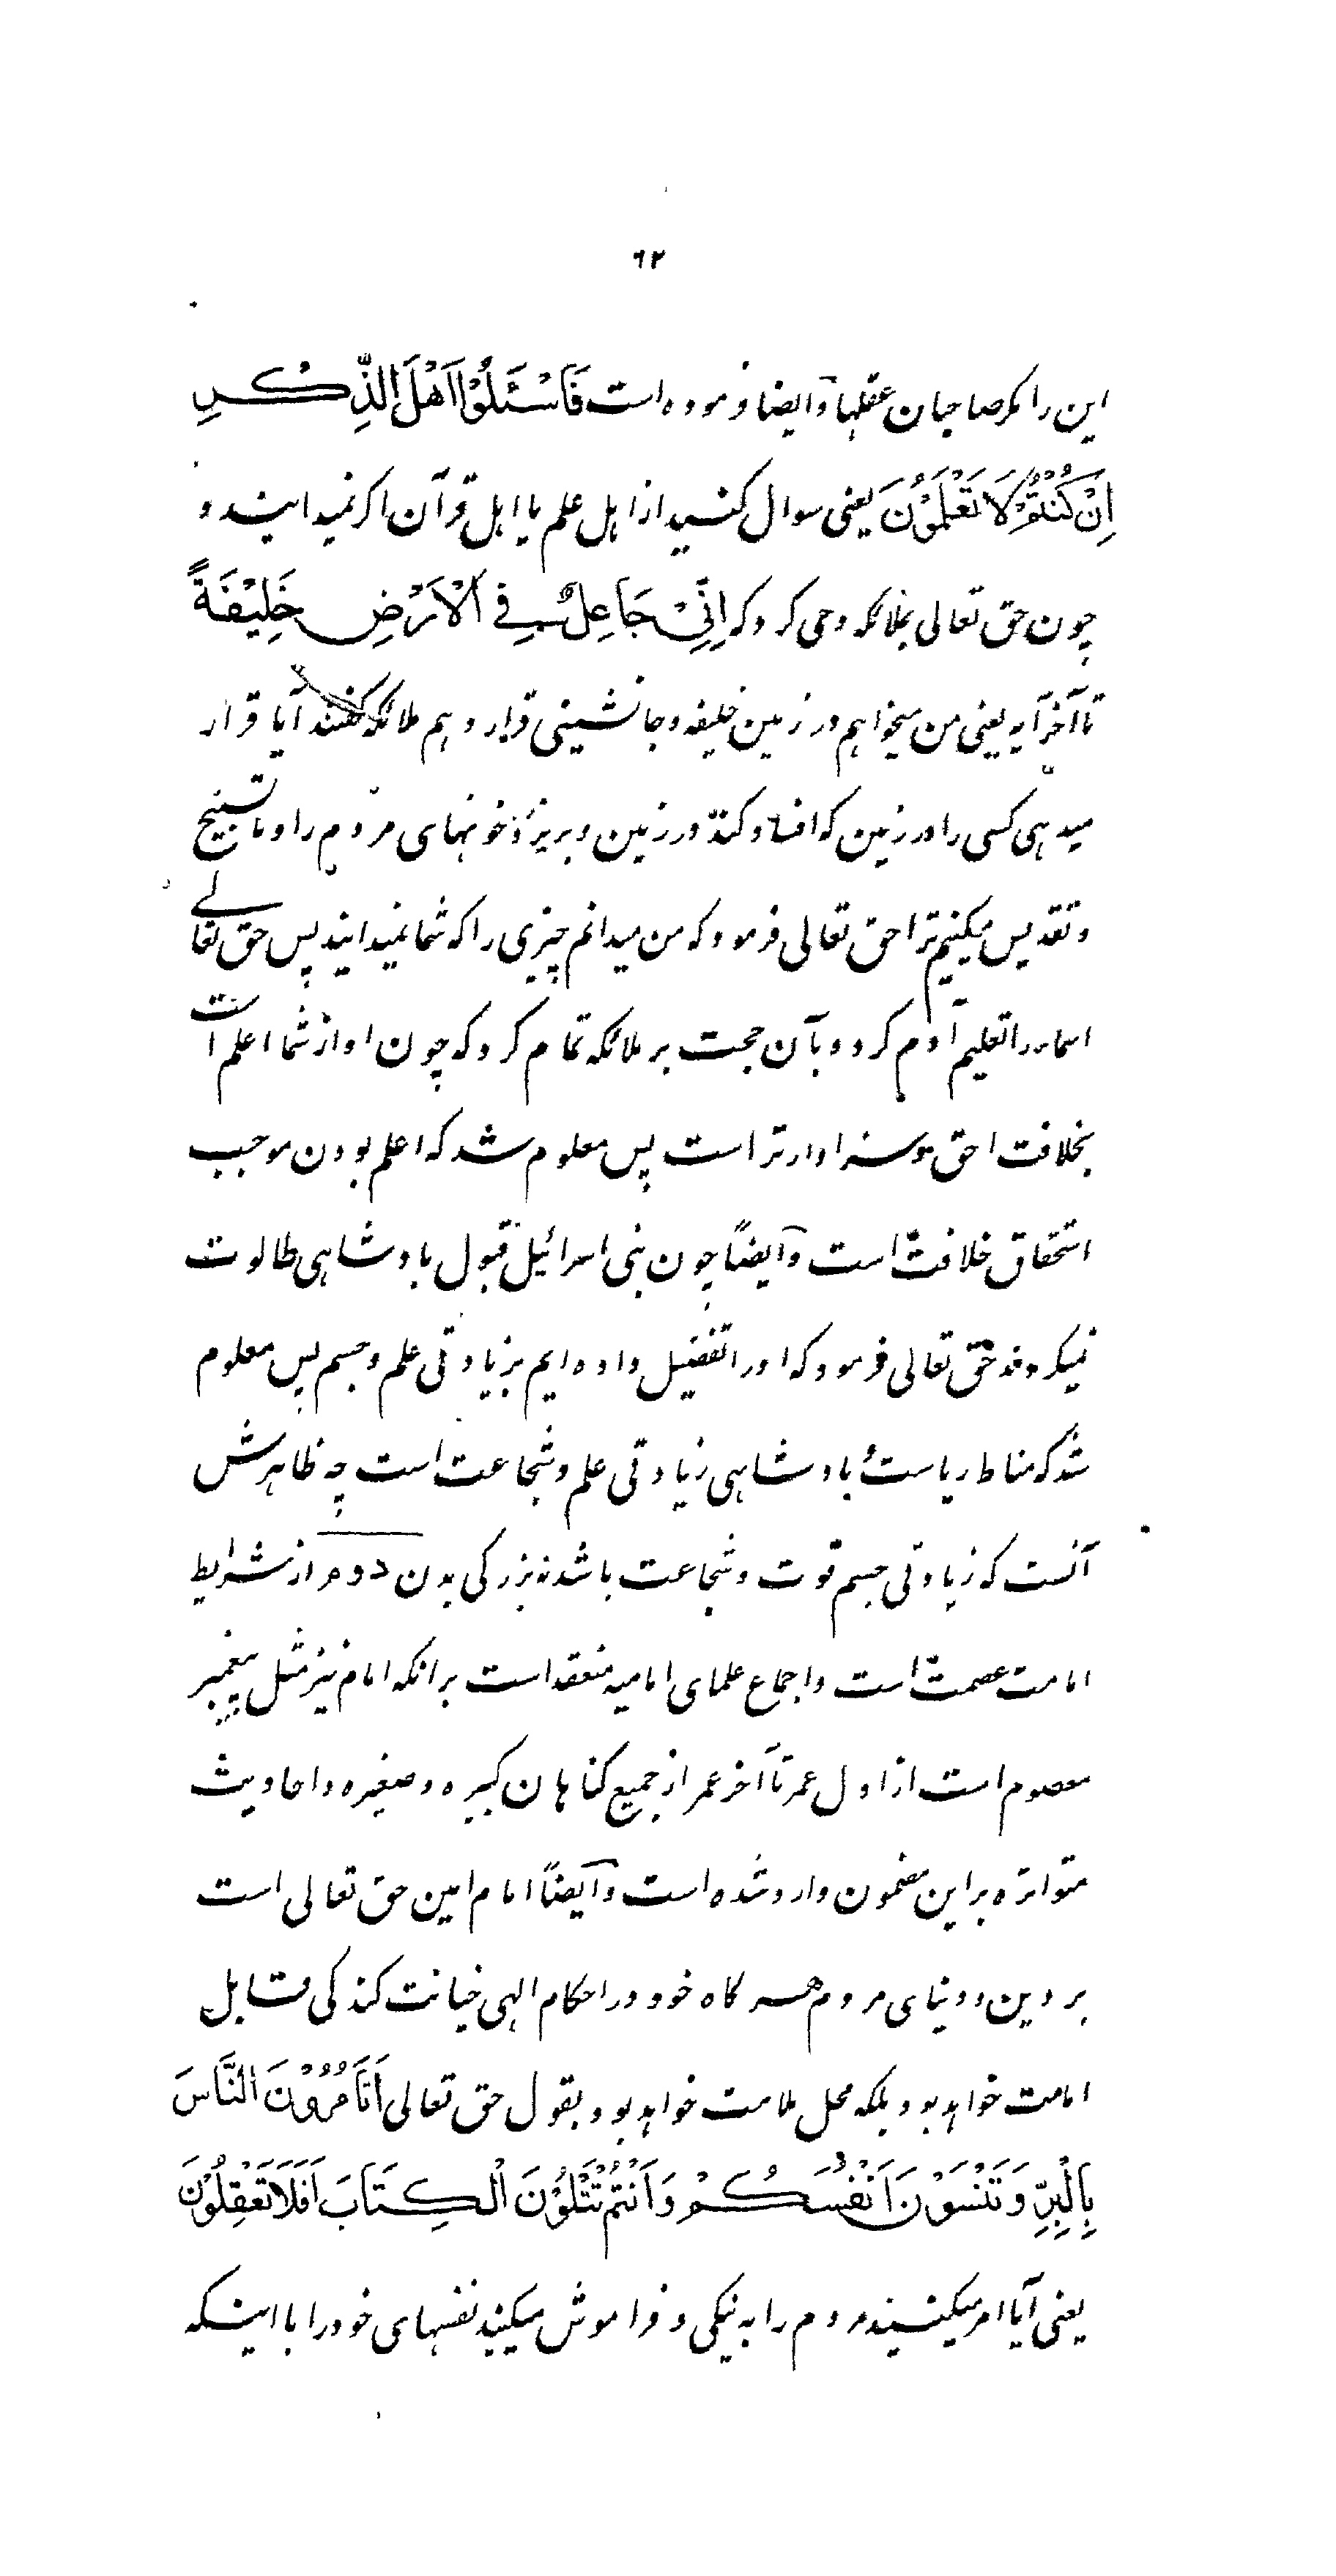 ٦٢
این را مکر صاحبان عقلها وایضا فرموده است فَاسْئَلُوْا اَهْلَ الذِّكْرِ
اِنْ كُنْتُمْ لَا تَعْلَمُوْنَ یعنی سوال کنسید از اهل علم یا اهل قرآن اکر نمیدانیند و
چون حق تعالی بملائکه وحی کرد که اِنِّيْ جَاعِلٌ فِي الْاَرْضِ خَلِيْفَةً
تا آخر آیه یعنی من میخواهم در زمین خلیفه و جانشینی قرار دهم ملائکه کفتند آیا قرار
میدهی کسی را در زمین که افساد کند در زمین و بریزد خونهای مردم را و ما تسبیح
و تقدیس میکنیم ترا حق تعالی فرمود که من میدانم چیزی را که شما نمیدانید پس حق تعالے
اسماء را تعلیم آدم کرد و بآن حجت بر ملائکه تمام کرد که چون او از شما اعلم است
بخلافت احق و سزاوارتر است پس معلوم شد که اعلم بودن موجب
استحقاق خلافت است وایضاً چون بنی اسرائیل قبول بادشاهی طالوت
نمیکردند حق تعالی فرمود که او را تفضیل داده ایم بزیادتی علم و جسم پس معلوم
شد که مناط ریاست و بادشاهی زیادتی علم و شجاعت است چه ظاهرش
آنست که زیادتی جسم قوت و شجاعت باشد نه بزرکی بدن دوم از شرایط
امامت عصمت است و اجماع علمای امامیه منعقد است بر انکه امام نیز مثل پیغمبر
معصوم است از اول عمر تا آخر عمر از جمیع کناهان کبیره و صغیره و احادیث
متواتره بر این مضمون وارد شده است وایضاً امام امین حق تعالی است
بر دین و دنیای مردم هر کاه خود در احکام الهی خیانت کند کی قابل
امامت خواهد بود بلکه محل ملامت خواهد بود بقول حق تعالی اَتَأمُرُوْنَ النَّاسَ
بِالْبِرِّ وَتَنْسَوْنَ اَنْفُسَكُمْ وَاَنْتُمْ تَتْلُوْنَ الْكِتَابَ اَفَلَا تَعْقِلُوْنَ
یعنی آیا امر میکنسید مردم را به نیکی و فراموش میکنید نفسهای خود را با اینکه